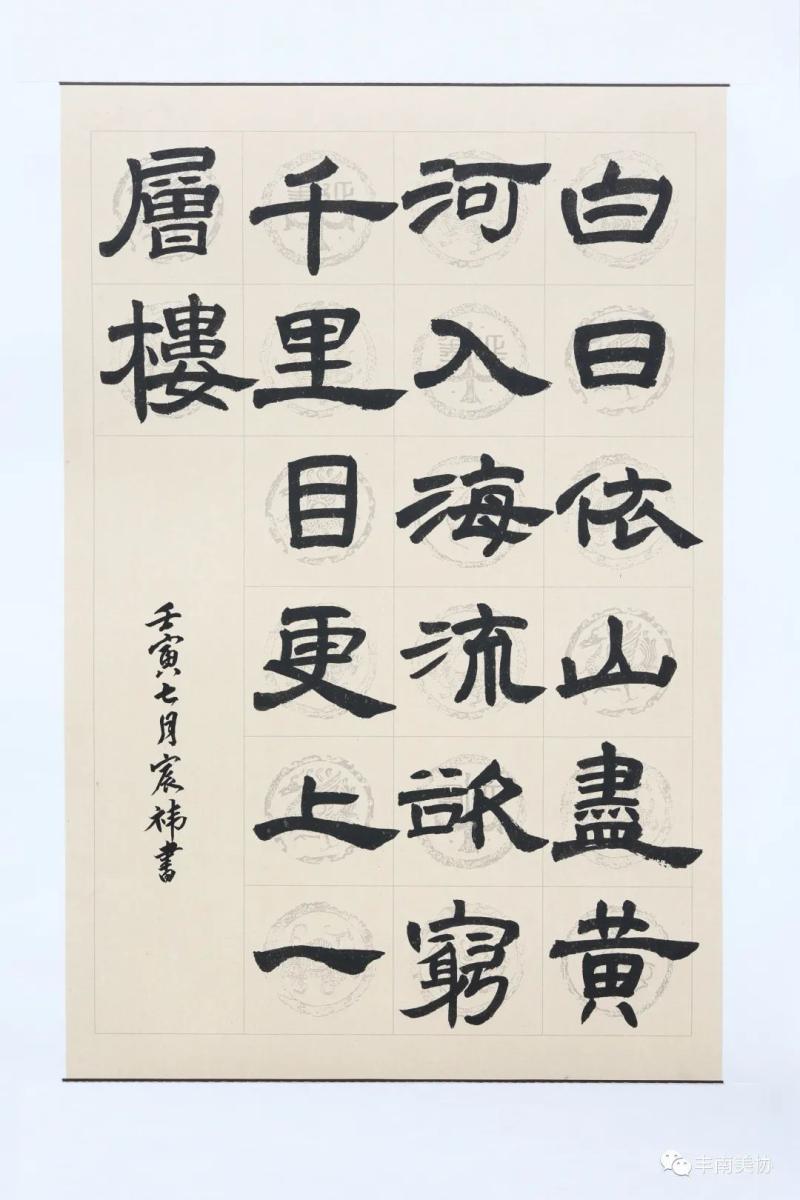 白日依山盡黃
河入海流欲窮
千里目更上一
層樓
壬寅七月宸祎書
丰南美协